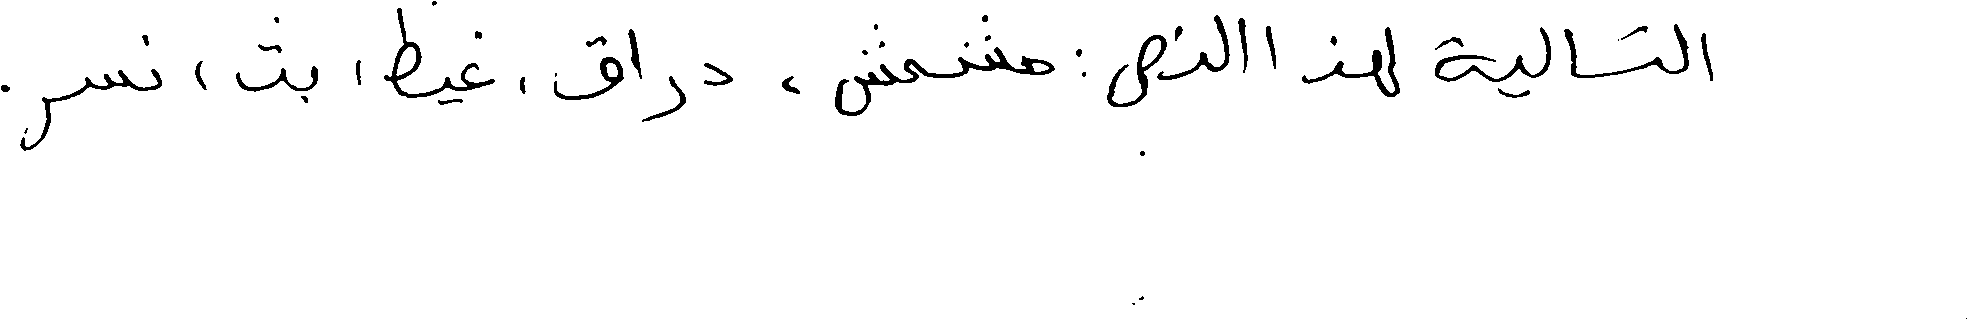 التالية لهذا النص: مشمش، دراق، غيظ، بث، نسر.